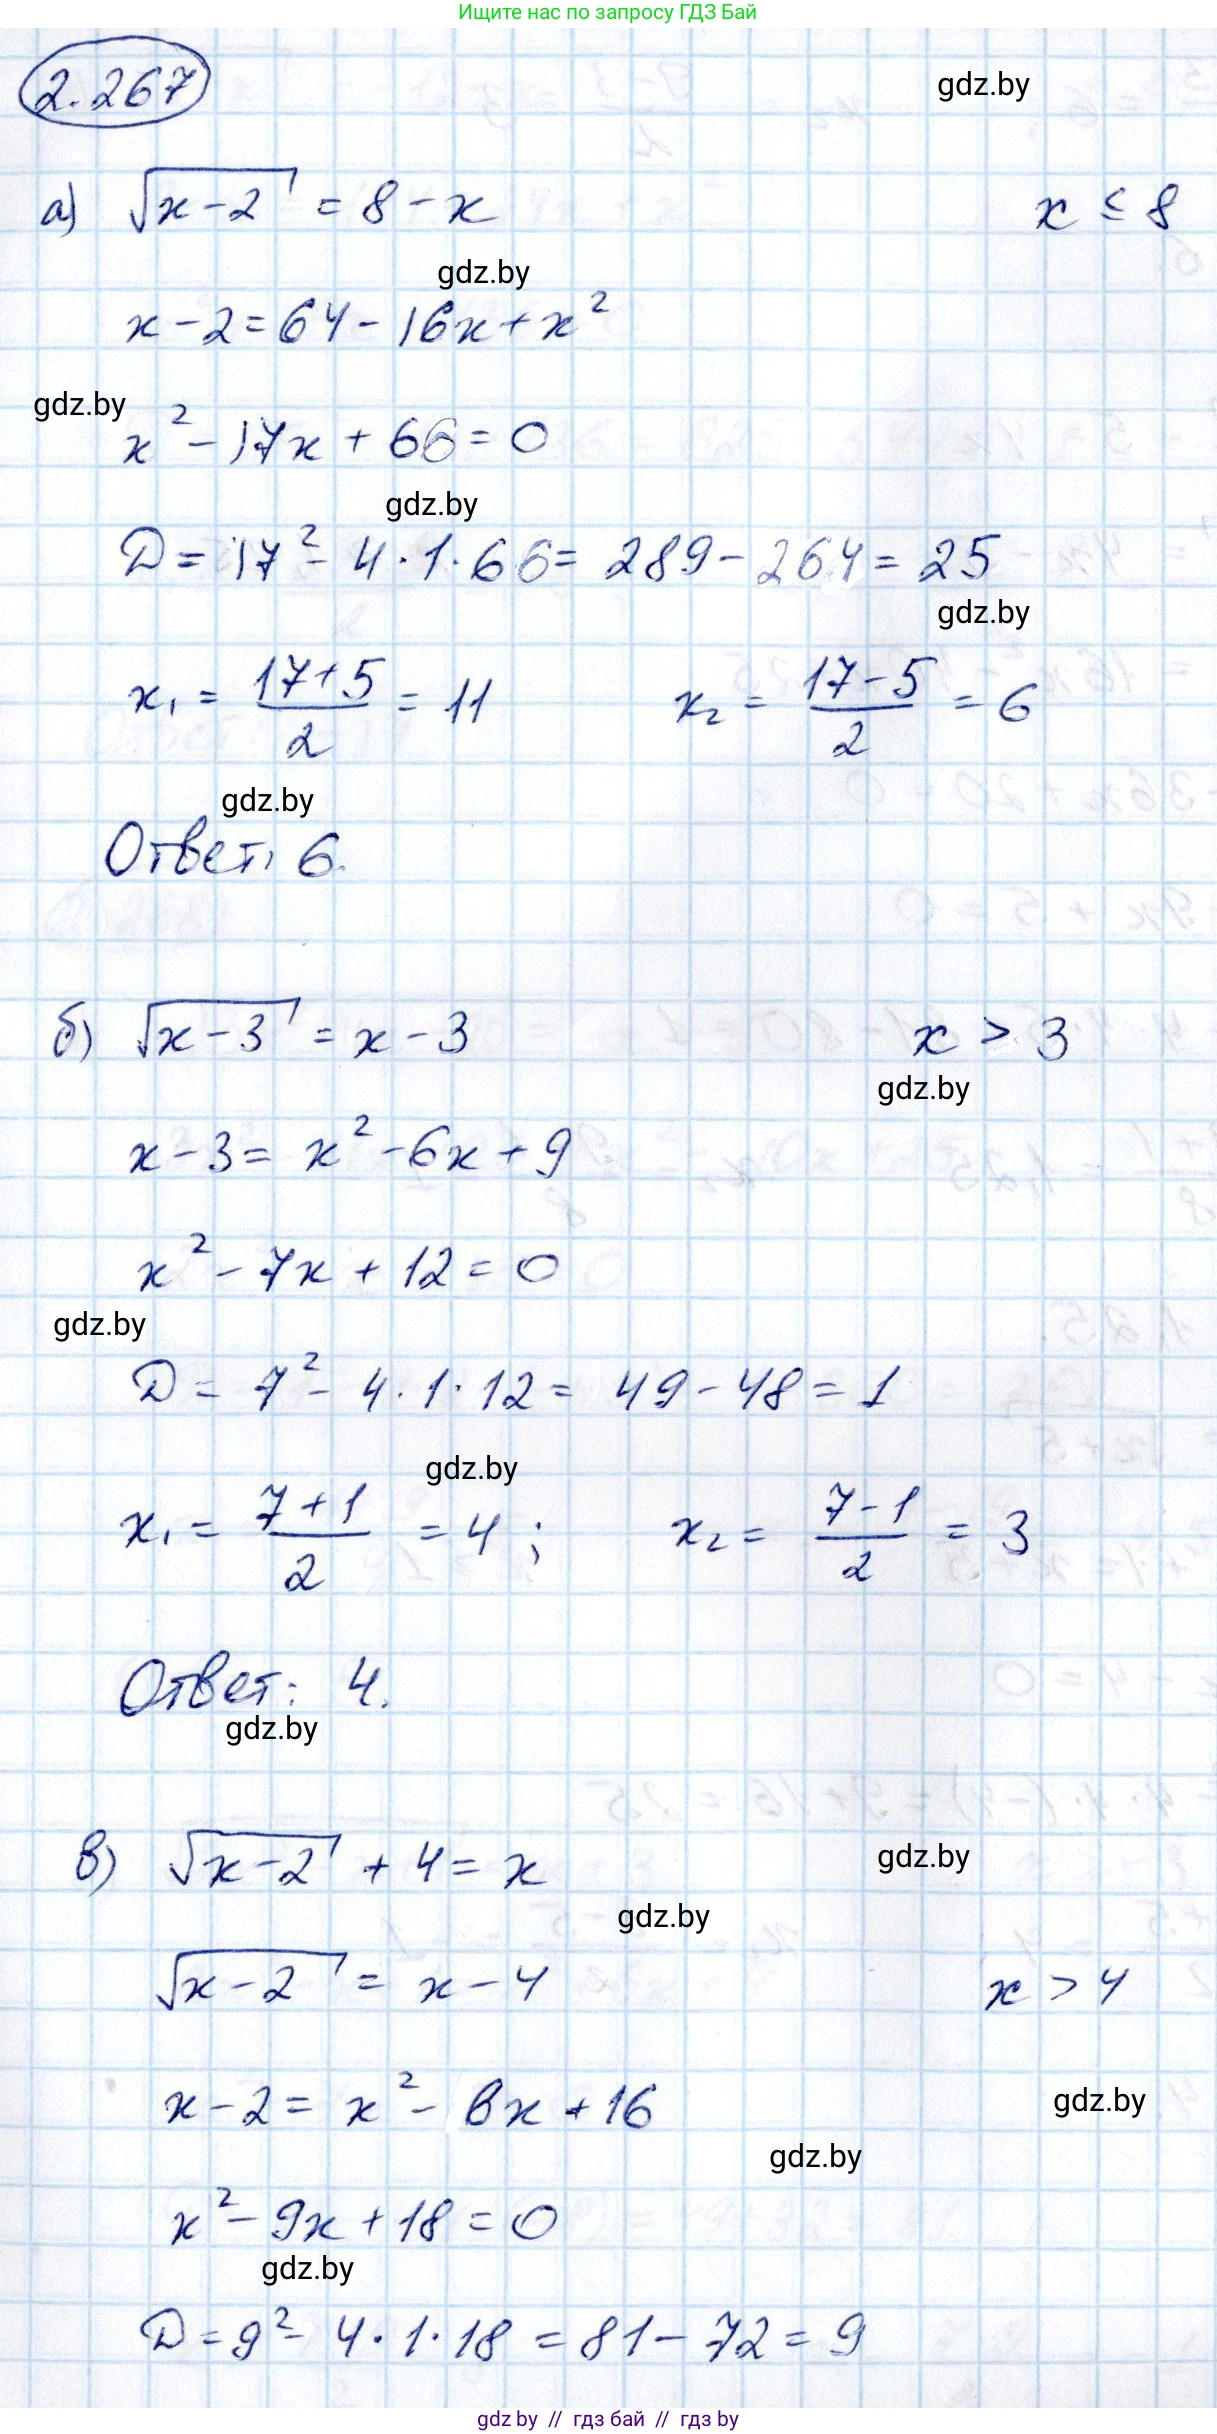 Ищите нас по запросу ГДЗ Бай
2.267
gdz.by
а) √(x-2) = 8 - x      x ≤ 8
gdz.by
x - 2 = 64 - 16x + x²
gdz.by
x² - 17x + 66 = 0
gdz.by
D = 17² - 4·1·66 = 289 - 264 = 25
gdz.by
x₁ = (17+5)/2 = 11      x₂ = (17-5)/2 = 6
gdz.by
Ответ: 6.
б) √(x-3) = x - 3      x > 3
gdz.by
x - 3 = x² - 6x + 9
x² - 7x + 12 = 0
gdz.by
D = 7² - 4·1·12 = 49 - 48 = 1
gdz.by
x₁ = (7+1)/2 = 4 ;      x₂ = (7-1)/2 = 3
Ответ: 4.
gdz.by
в) √(x-2) + 4 = x
gdz.by
gdz.by
√(x-2) = x - 4      x > 4
x - 2 = x² - 8x + 16
gdz.by
gdz.by
x² - 9x + 18 = 0
gdz.by
D = 9² - 4·1·18 = 81 - 72 = 9
gdz by // гдз бай // гдз by